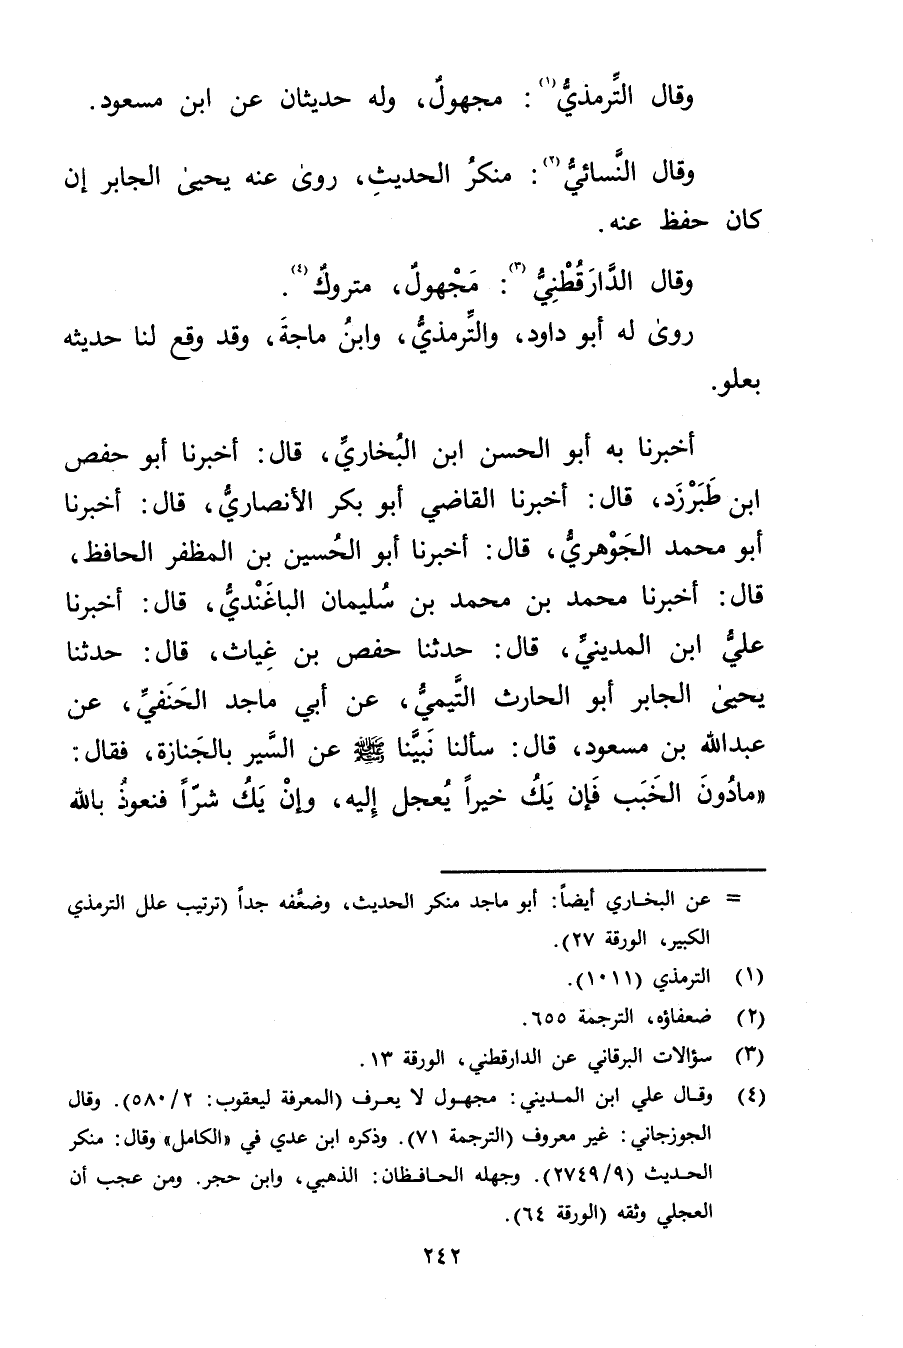 وقال التِّرمذيُّ(١): مجهولٌ، وله حديثان عن ابن مسعود.
وقال النَّسائيُّ(٢): منكرُ الحديثِ، روىٰ عنه يحيىٰ الجابر إن
كان حفظ عنه.
وقال الدَّارَقُطْنِيُّ(٣): مَجْهولٌ، متروكٌ(٤).
روىٰ له أبو داود، والتِّرمذيُّ، وابنُ ماجةَ، وقد وقع لنا حديثه
بعلو.
أخبرنا به أبو الحسن ابن البُخاريِّ، قال: أخبرنا أبو حفص
ابن طَبَرْزَد، قال: أخبرنا القاضي أبو بكر الأنصاريُّ، قال: أخبرنا
أبو محمد الجَوْهريُّ، قال: أخبرنا أبو الحُسين بن المظفر الحافظ،
قال: أخبرنا محمد بن محمد بن سُليمان الباغَنْديُّ، قال: أخبرنا
عليُّ ابن المدينيِّ، قال: حدثنا حفص بن غِياث، قال: حدثنا
يحيىٰ الجابر أبو الحارث التَّيميُّ، عن أبي ماجد الحَنَفيِّ، عن
عبدالله بن مسعود، قال: سألنا نَبيَّنا ﷺ عن السَّير بالجَنازة، فقال:
«مادُونَ الخَبَب فَإن يَكُ خيراً يُعجل إليه، وإنْ يَكُ شرّاً فنعوذُ بالله
= عن البخاري أيضاً: أبو ماجد منكر الحديث، وضعَّفه جداً (ترتيب علل الترمذي
الكبير، الورقة ٢٧).
(١) الترمذي (١٠١١).
(٢) ضعفاؤه، الترجمة ٦٥٥.
(٣) سؤالات البرقاني عن الدارقطني، الورقة ١٣.
(٤) وقال علي ابن المديني: مجهول لا يعرف (المعرفة ليعقوب: ٢/ ٥٨٠). وقال
الجوزجاني: غير معروف (الترجمة ٧١). وذكره ابن عدي في «الكامل» وقال: منكر
الحديث (٩/ ٢٧٤٩). وجهله الحافظان: الذهبي، وابن حجر. ومن عجب أن
العجلي وثقه (الورقة ٦٤).
٢٤٢